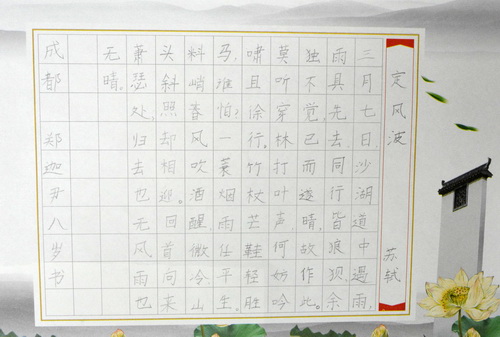 定风波 苏轼
三月七日,沙湖道中遇雨,
雨具先去,同行皆狼狈,余
独不觉。已而遂晴,故作此。
莫听穿林打叶声,何妨吟
啸且徐行。竹杖芒鞋轻胜
马,谁怕?一蓑烟雨任平生。
料峭春风吹酒醒,微冷,山
头斜照却相迎。回首向来
萧瑟处,归去也无风雨也
无晴。
成都 郑迦尹八岁书